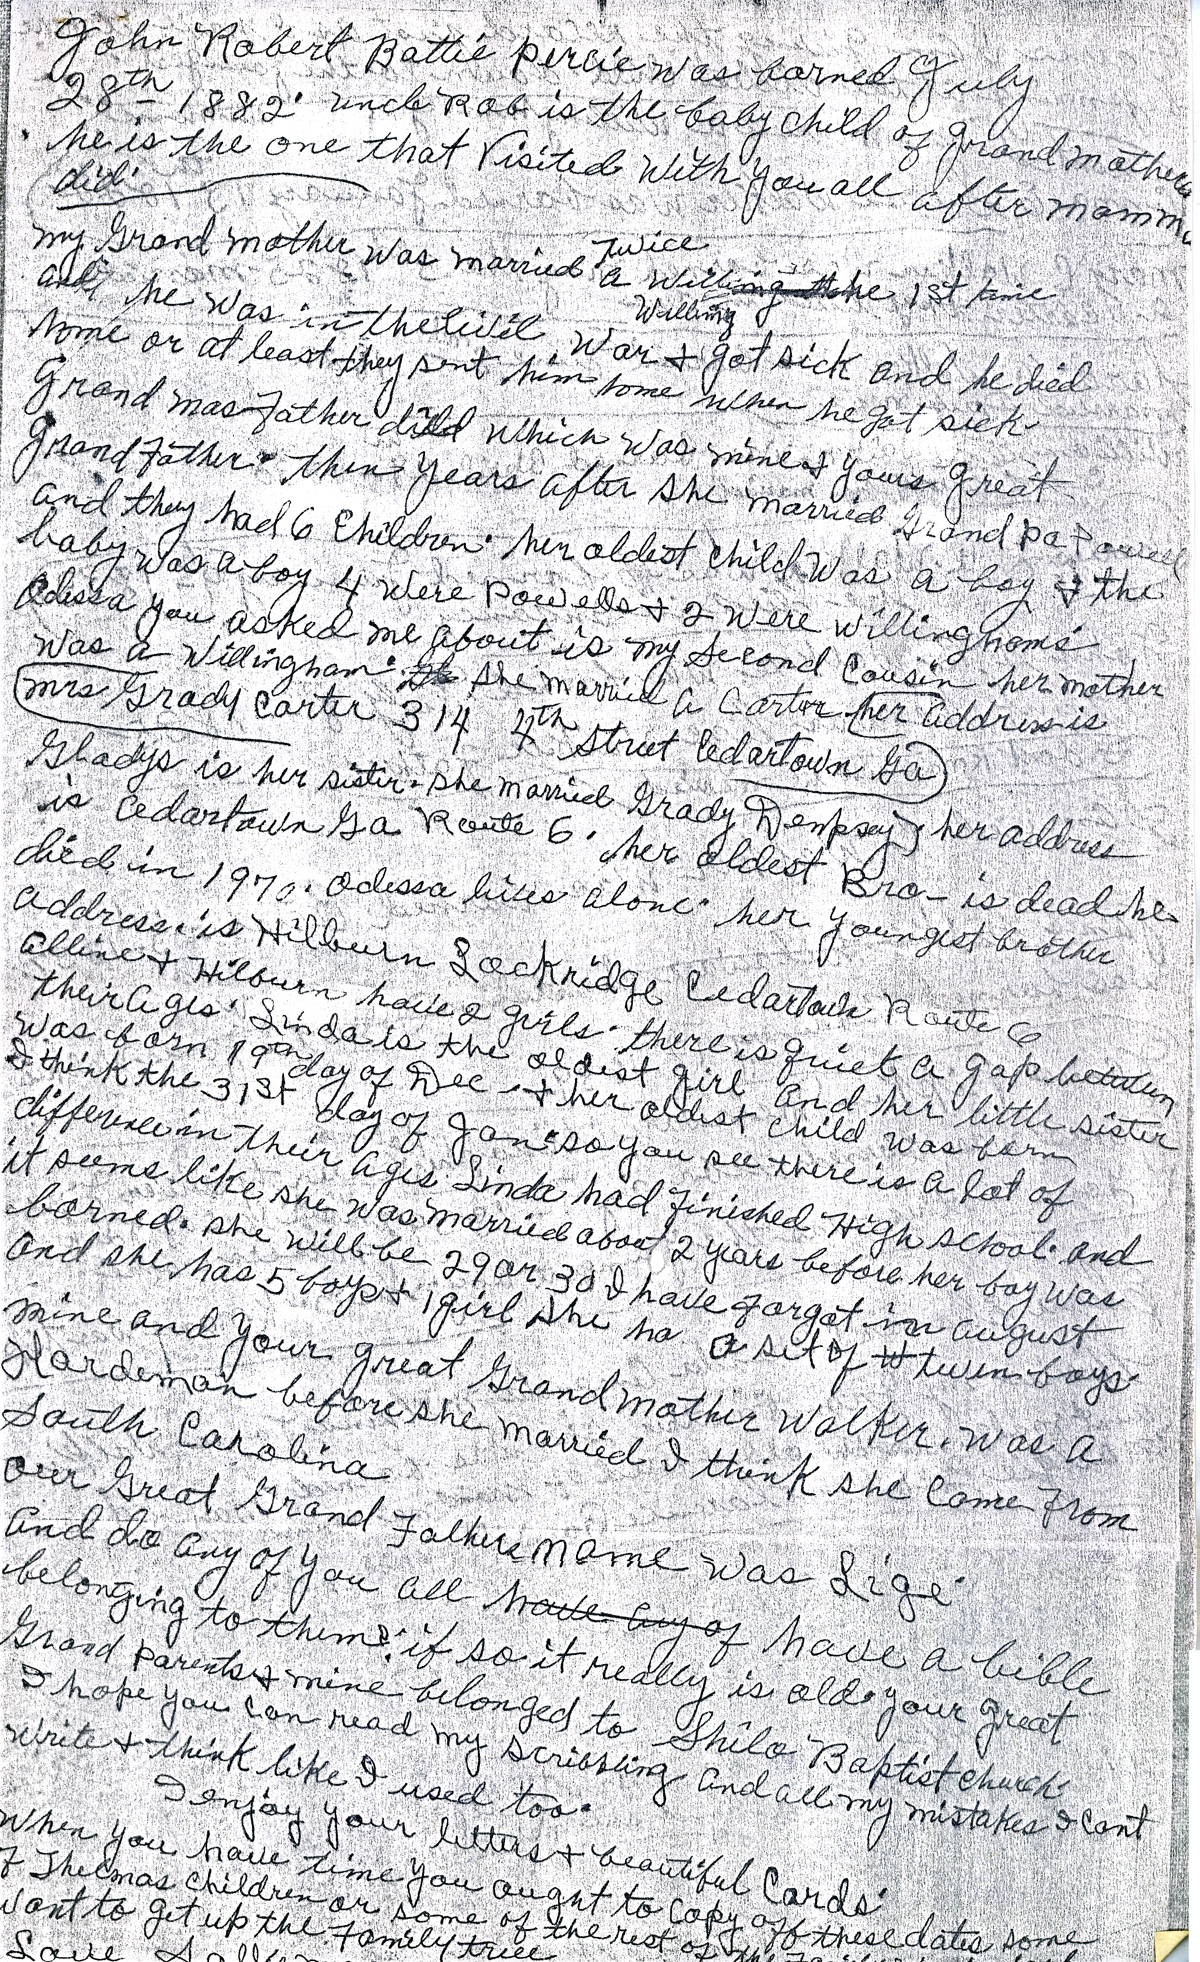 John Robert Battie percie was borned July
28th 1882. uncle Rob is the baby child of grand mothers
he is the one that visited with you all after mamma
did.
my Grand mother was married twice
a Willing he 1st time
and he was in the Civil War & got sick and he died
Willing
home or at least they sent him home when he got sick.
Grand mas Father did which was mine & yours great
Grand Father. then years after she married Grand pa Powell
and they had 6 Children. her oldest child was a boy & the
baby was a boy 4 were Powells & 2 were willinghoms
Odessa you asked me about is my second Cousin her mother
was a Willingham. she married a Carter her address is
mrs Grady Carter 314 4th Street Cedartown Ga
Gladys is her sister. she married Grady Dempsey, her address
is Cedartown Ga Route 6. her oldest Bro- is dead he
died in 1970. Odessa lives alone. her youngist brother
address is Hilburn Lockridge Cedartown Route 6
alline & Hilburn have 2 girls. there is quiet a gap between
their ages. Linda is the oldest girl and her little sister
was born 19th day of Dec. & her oldest child was born
I think the 31st day of Jan. so you see there is a lot of
difference in their ages Linda had finished High school. and
it seems like she was married about 2 years before her boy was
borned. she will be 29 or 30 I have forgot in august
and she has 5 boys & 1 girl she ha a set of twin boys.
mine and your great Grand mother Walker. was a
Hardeman before she married I think she come from
South Carolina
our Great Grand Fathers name was Lige.
and do any of you all have any of have a bible
belonging to them? if so it really is old. your great
Grand parents & mine belonged to Shilo Baptist church
I hope you can read my scribbling and all my mistakes I cant
write & think like I used too.
I enjoy your letters & beautiful Cards.
When you have time you ought to copy off these dates some
of Thelmas children or some of the rest of the
want to get up the Family tree
Love